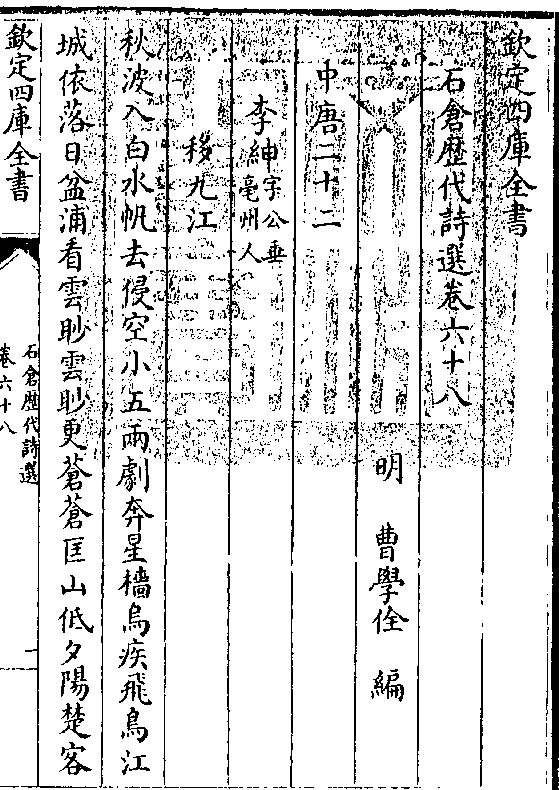 欽定四庫全書
石倉歴代詩選卷六十八
明 曹學佺 編
中唐二十二
李紳字公垂亳州人
移九江
秋波入白水帆去侵空小五兩劇奔星檣烏疾飛鳥江
城依落日盆浦看雲眇雲眇更蒼蒼匡山低夕陽楚客
欽定四庫全書
石倉歴代詩選
卷六十八
一